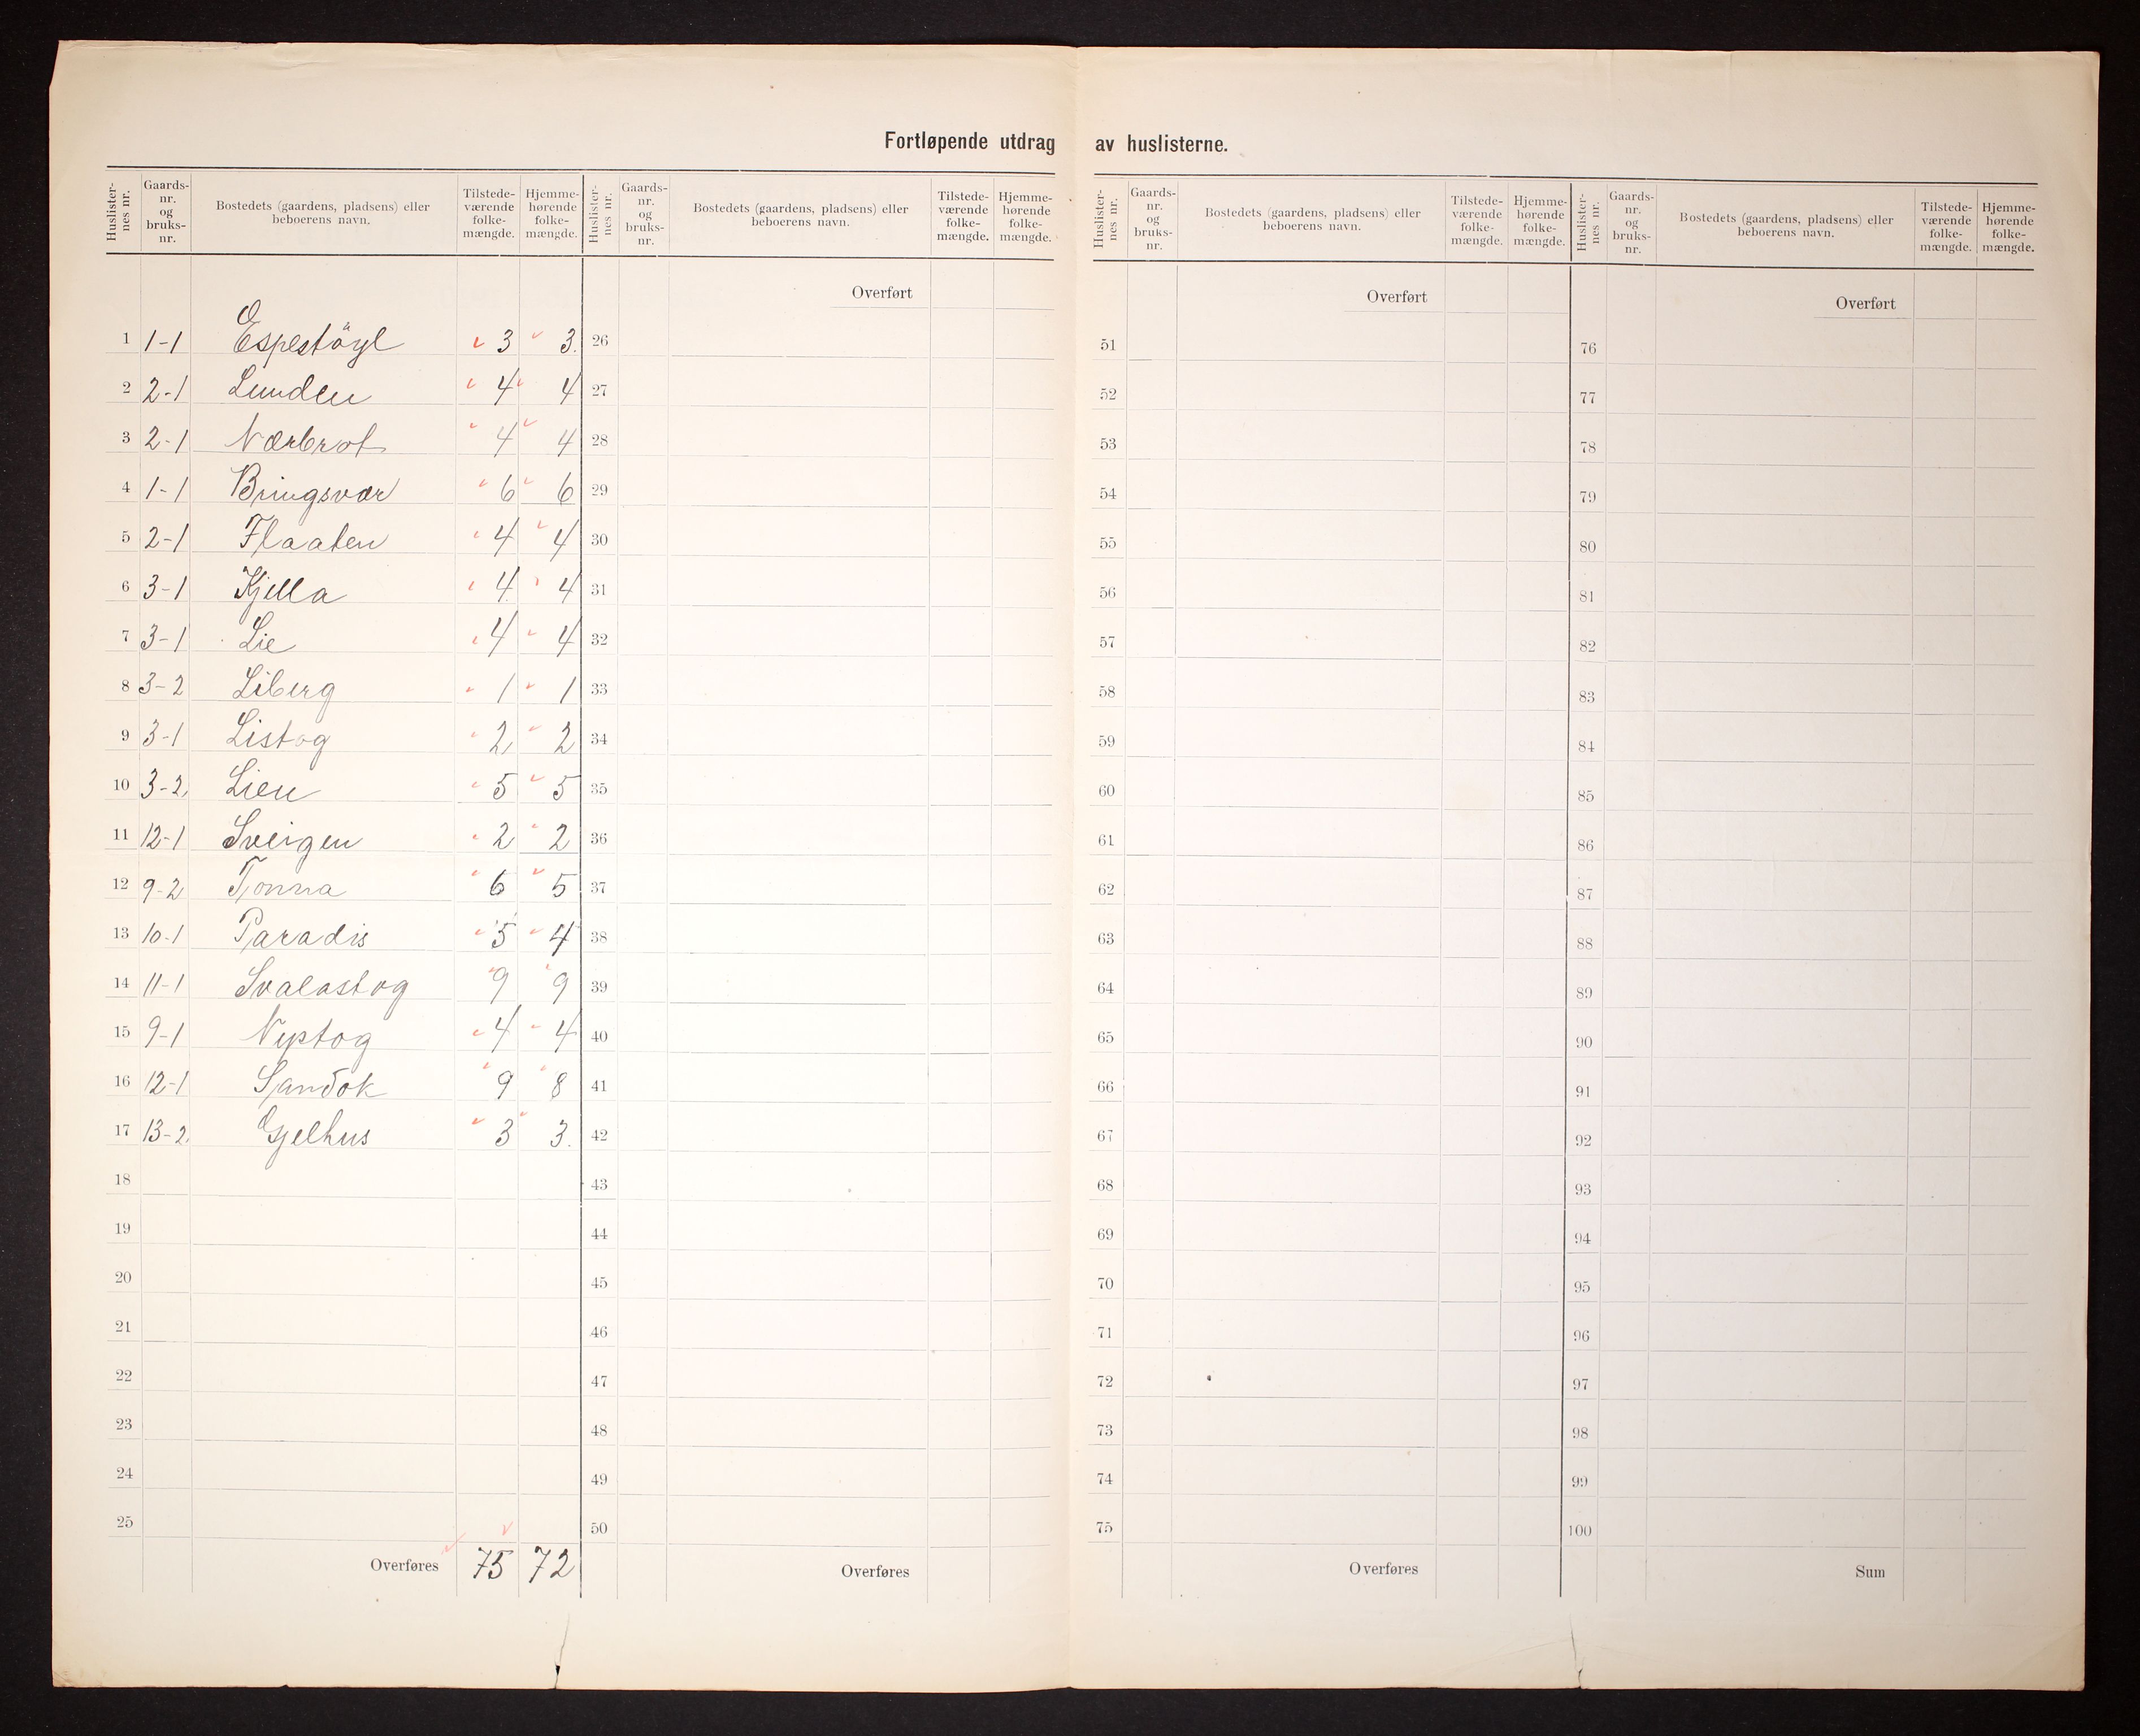 Fortløpende utdrag av huslisterne.
Huslister-nes nr. Gaards-nr. og bruks-nr. Bostedets (gaardens, pladsens) eller beboerens navn. Tilstede-værende folke-mængde. Hjemme-hørende folke-mængde.
1 1-1 Espestöyl 3 3.
2 2-1 Lunden 4 4
3 2-1 Nærbrot 4 4
4 1-1 Bringsvær 6 6
5 2-1 Flaaten 4 4
6 3-1 Kjella 4 4
7 3-1 Lie 4 4
8 3-2 Liberg 1 1
9 3-1 Listog 2 2
10 3-2 Lien 5 5
11 12-1 Sveigen 2 2
12 9-2 Tjonna 6 5
13 10-1 Paradis 5 4
14 11-1 Svalastog 9 9
15 9-1 Nystog 4 4
16 12-1 Sandok 9 8
17 13-2 Gjelhus 3 3.
18
19
20
21
22
23
24
25
Overføres 75 72
Huslister-nes nr. Gaards-nr. og bruks-nr. Bostedets (gaardens, pladsens) eller beboerens navn. Tilstede-værende folke-mængde. Hjemme-hørende folke-mængde.
Overført
26
27
28
29
30
31
32
33
34
35
36
37
38
39
40
41
42
43
44
45
46
47
48
49
50
Overføres
Huslister-nes nr. Gaards-nr. og bruks-nr. Bostedets (gaardens, pladsens) eller beboerens navn. Tilstede-værende folke-mængde. Hjemme-hørende folke-mængde.
Overført
51
52
53
54
55
56
57
58
59
60
61
62
63
64
65
66
67
68
69
70
71
72
73
74
75
Overføres
Huslister-nes nr. Gaards-nr. og bruks-nr. Bostedets (gaardens, pladsens) eller beboerens navn. Tilstede-værende folke-mængde. Hjemme-hørende folke-mængde.
Overført
76
77
78
79
80
81
82
83
84
85
86
87
88
89
90
91
92
93
94
95
96
97
98
99
100
Sum